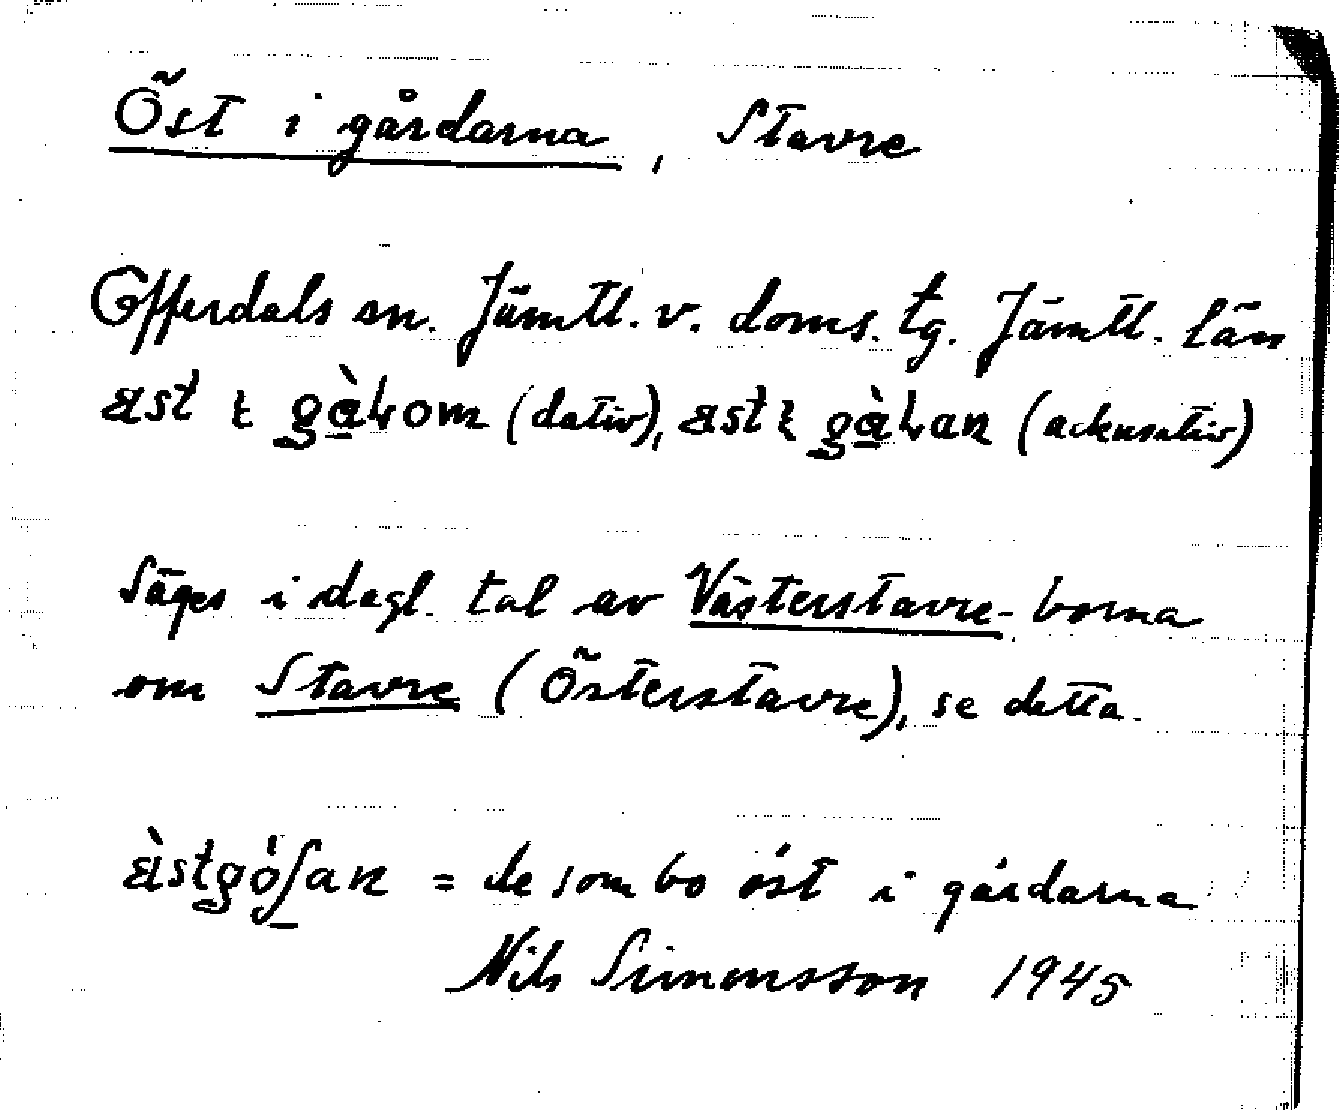 Öst i gårdarna, Stavre
Offerdals sn. Jämtl. v. doms. tg. Jämtl. län
(dativ), (ackusativ)
Säges i dagl. tal av Västerstavre-borna
om Stavre (Österstavre), se detta.
= de som bo öst i gårdarna
Nils Simonsson 1945